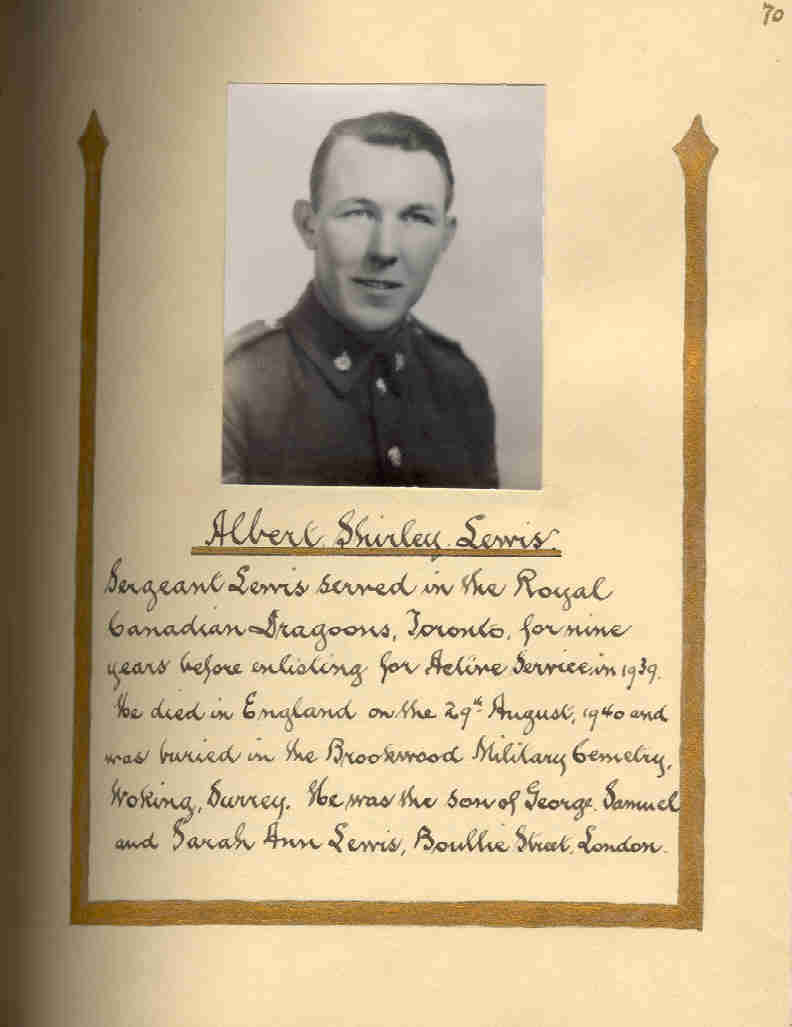 70
Albert Shirley Lewis.
Sergeant Lewis served in the Royal
Canadian Dragoons, Toronto, for nine
years before enlisting for Active Service in 1939.
He died in England on the 29th August, 1940 and
was buried in the Brookwood Military Cemetry,
Woking, Surrey. He was the son of George Samuel
and Sarah Ann Lewis, Boullie Street, London.